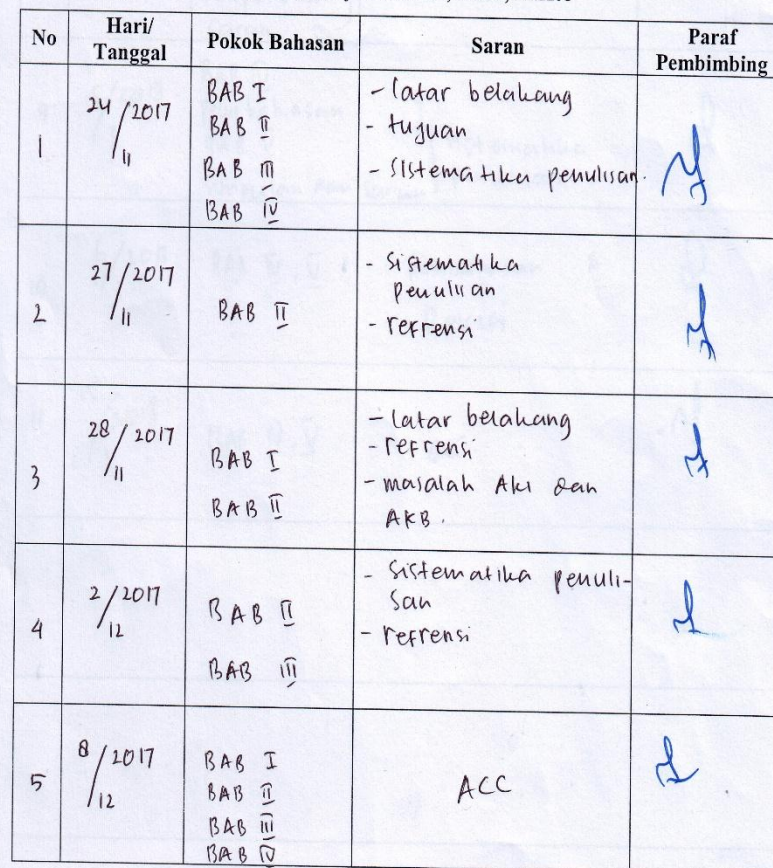 No Hari/ Tanggal Pokok Bahasan Saran Paraf Pembimbing
1
24/11 2017
BAB I
BAB II
BAB III
BAB IV
- latar belakang
- tujuan
- sistematika penulisan.
2
27/11 2017
BAB II
- sistematika
penulisan
- refrensi
3
28/11 2017
BAB I
BAB II
- latar belakang
- refrensi
- masalah AKI dan
AKB.
4
2/12 2017
BAB II
BAB III
- sistematika penuli-
san
- refrensi
5
8/12 2017
BAB I
BAB II
BAB III
BAB IV
ACC